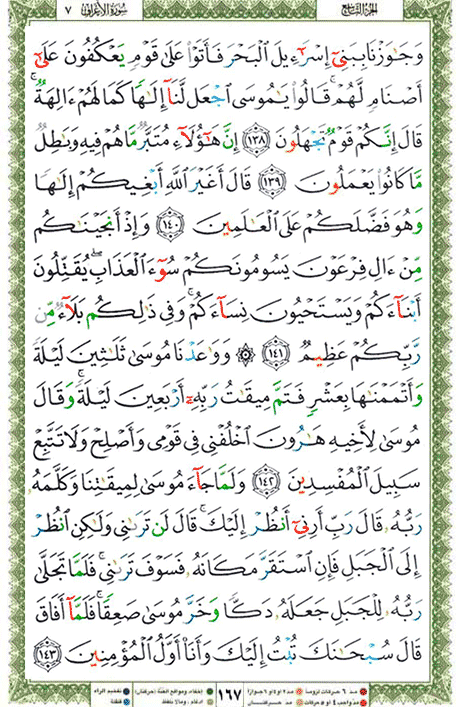 الجزء التاسع ٧ سورة الأعراف
وَجَٰوَزْنَا بِبَنِىٓ إِسْرَٰٓءِيلَ ٱلْبَحْرَ فَأَتَوْا۟ عَلَىٰ قَوْمٍ يَعْكُفُونَ عَلَىٰٓ
أَصْنَامٍ لَّهُمْ ۚ قَالُوا۟ يَٰمُوسَى ٱجْعَل لَّنَآ إِلَٰهًا كَمَا لَهُمْ ءَالِهَةٌ ۚ
قَالَ إِنَّكُمْ قَوْمٌ تَجْهَلُونَ ١٣٨ إِنَّ هَٰٓؤُلَآءِ مُتَبَّرٌ مَّا هُمْ فِيهِ وَبَٰطِلٌ
مَّا كَانُوا۟ يَعْمَلُونَ ١٣٩ قَالَ أَغَيْرَ ٱللَّهِ أَبْغِيكُمْ إِلَٰهًا
وَهُوَ فَضَّلَكُمْ عَلَى ٱلْعَٰلَمِينَ ١٤٠ وَإِذْ أَنجَيْنَٰكُم
مِّنْ ءَالِ فِرْعَوْنَ يَسُومُونَكُمْ سُوٓءَ ٱلْعَذَابِ ۖ يُقَتِّلُونَ
أَبْنَآءَكُمْ وَيَسْتَحْيُونَ نِسَآءَكُمْ ۚ وَفِى ذَٰلِكُم بَلَآءٌ مِّن
رَّبِّكُمْ عَظِيمٌ ١٤١ ۞ وَوَٰعَدْنَا مُوسَىٰ ثَلَٰثِينَ لَيْلَةً
وَأَتْمَمْنَٰهَا بِعَشْرٍ فَتَمَّ مِيقَٰتُ رَبِّهِۦٓ أَرْبَعِينَ لَيْلَةً ۚ وَقَالَ
مُوسَىٰ لِأَخِيهِ هَٰرُونَ ٱخْلُفْنِى فِى قَوْمِى وَأَصْلِحْ وَلَا تَتَّبِعْ
سَبِيلَ ٱلْمُفْسِدِينَ ١٤٢ وَلَمَّا جَآءَ مُوسَىٰ لِمِيقَٰتِنَا وَكَلَّمَهُۥ
رَبُّهُۥ قَالَ رَبِّ أَرِنِىٓ أَنظُرْ إِلَيْكَ ۚ قَالَ لَن تَرَىٰنِى وَلَٰكِنِ ٱنظُرْ
إِلَى ٱلْجَبَلِ فَإِنِ ٱسْتَقَرَّ مَكَانَهُۥ فَسَوْفَ تَرَىٰنِى ۚ فَلَمَّا تَجَلَّىٰ
رَبُّهُۥ لِلْجَبَلِ جَعَلَهُۥ دَكًّا وَخَرَّ مُوسَىٰ صَعِقًا ۚ فَلَمَّآ أَفَاقَ
قَالَ سُبْحَٰنَكَ تُبْتُ إِلَيْكَ وَأَنَا۠ أَوَّلُ ٱلْمُؤْمِنِينَ ١٤٣
مد ٦ حركات لزوماً مد ٢ أو ٤ أو ٦ جوازاً ١٦٧ إخفاء، ومواقع الغنة (حركتان) تفخيم الراء
مد واجب ٤ أو ٥ حركات مد حركتان إدغام، وما لا يلفظ قلقلة